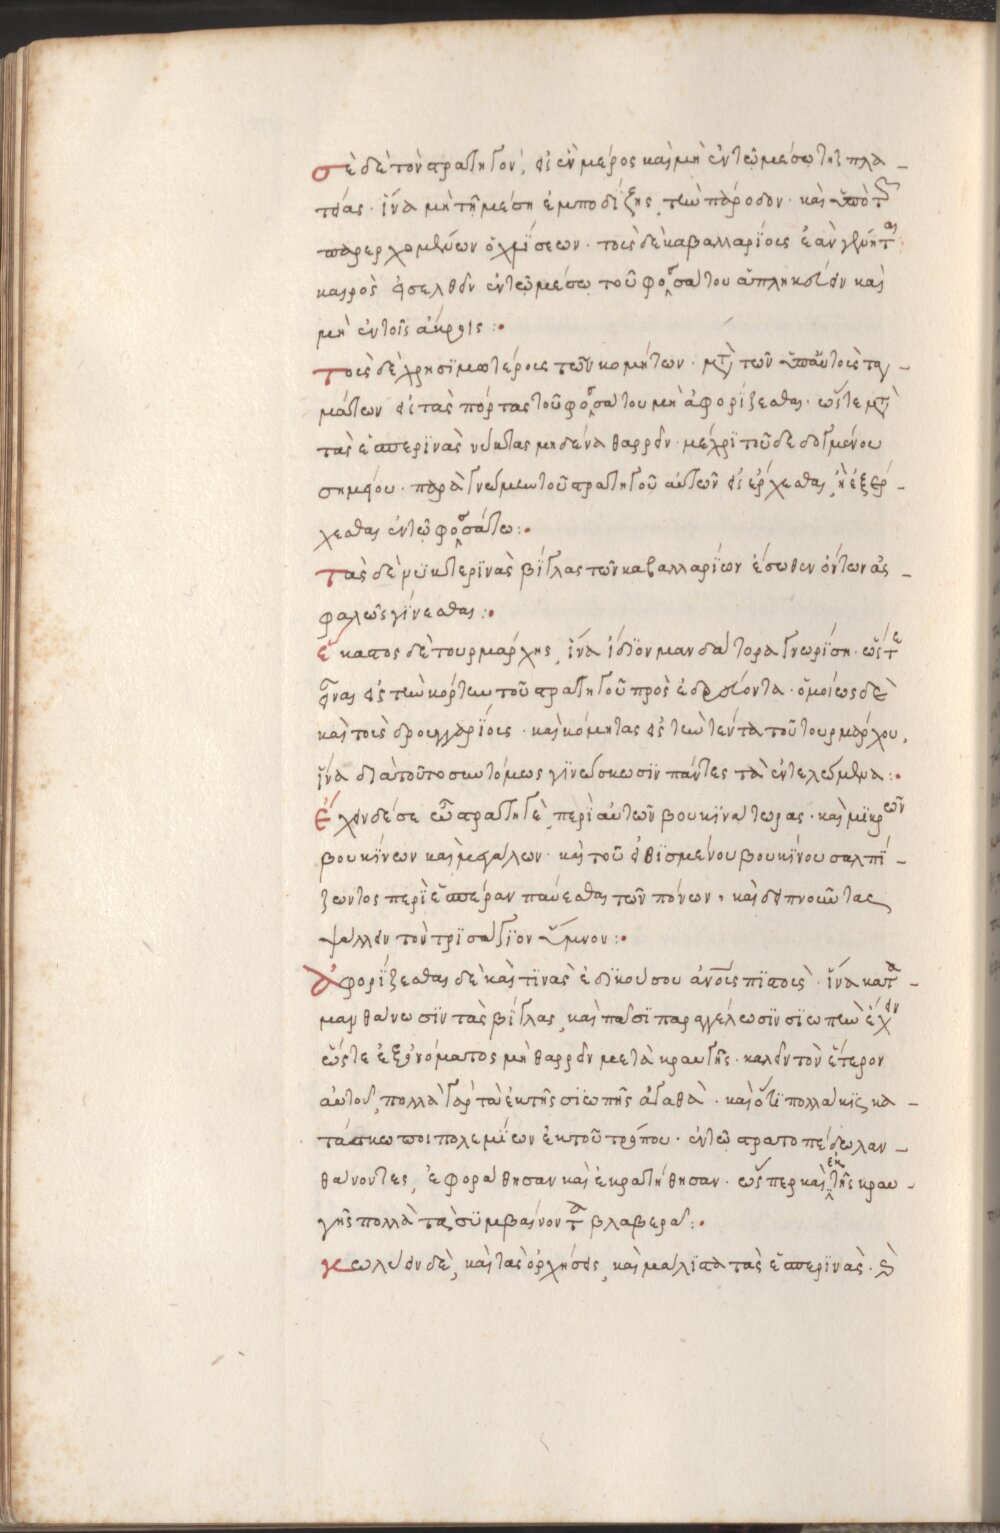 σὲ δὲ τὸν στρατηγὸν, εἰς ἓν μέρος καὶ μὴ ἐν τῷ μέσῳ τῆς πλα-
τείας. ἵνα μὴ τῇ μέσῃ ἐμποδίζῃς, τὴν πάροδον. καὶ ὑπὸ τῶν
παρερχομένων ὀχλήσεων. τοῖς δὲ καβαλλαρίοις ἐὰν γένηται
καιρὸς εἰσελθεῖν ἐν τῷ μέσῳ τοῦ φοσσάτου ἀπληκεύειν καὶ
μὴ ἐν τοῖς ἄκροις :·
τοὺς δὲ χρησιμωτέρους τῶν κομήτων. μετὰ τῶν ὑπ' αὐτοὺς ταγ-
μάτων εἰς τὰς πόρτας τοῦ φοσσάτου μὴ ἀφορίζεσθαι. ὥστε μετὰ
τὰς ἑσπερινὰς νύκτας μηδένα θαρρεῖν. μέχρι τοῦ δεδομένου
σημείου. παρὰ γνώμην τοῦ στρατηγοῦ αὐτῶν εἰσέρχεσθαι, ἢ ἐξέρ-
χεσθαι ἐν τῷ φοσσάτῳ :·
τὰς δὲ νυκτερινὰς βίγλας τῶν καβαλλαρίων ἔσωθεν ὄντων ἀσ-
φαλῶς γίνεσθαι :·
ἕκαστος δὲ τουρμάρχης, ἵνα ἴδιον μανδάτορα γνωρίσῃ. ὥστε
εἶναι εἰς τὴν κόρτην τοῦ στρατηγοῦ προσεδρεύοντα. ὁμοίως δὲ
καὶ τοὺς δρουγγαρίους. καὶ κόμητας εἰς τὴν τένταν τοῦ τουρμάρχου,
ἵνα διὰ τοῦτο συντόμως γινώσκωσιν πάντες τὰ ἐντελλόμενα :·
ἔχειν δέ σε ὦ στρατηγὲ, περὶ αὐτῶν βουκινάτωρας. καὶ μικρῶν
βουκίνων καὶ μεγάλων. καὶ τοῦ εἰθισμένου βουκίνου σαλπί-
ζωντος περὶ ἑσπέραν παύεσθαι τῶν πόνων, καὶ δειπνοῦντας
ψάλλειν τὸν τρισάγιον ὕμνον :·
ἀφορίζεσθαι δὲ καί τινας ἐδίκου σου ἀνοις πιστοὺς. ἵνα κατα-
μανθάνωσιν τὰς βίγλας, καὶ πᾶσι παραγγέλωσιν σιωπὴν ἔχειν
ὥστε ἐξ ὀνόματος μὴ θαρρεῖν μετὰ κραυγῆς. καλεῖν τὸν ἕτερον
αὐτοῦ, πολλὰ γὰρ τὰ ἐκ τῆς σιωπῆς ἀγαθὰ. καὶ ὅτι πολλάκις κα-
τάσκωποι πολεμίων ἐκ τοῦ τρόπου. ἐν τῷ στρατοπέδῳ λαν-
θάνοντες, ἐφοράθησαν καὶ ἐκρατήθησαν. ὥσπερ καὶ ἐκ τῆς κραυ-
γῆς πολλὰ τὰ συμβαίνοντα βλαβερά :·
κωλύειν δὲ, καὶ τὰς ὀρχήσεις, καὶ μάλιστα τὰς ἑσπερινὰς. καὶ